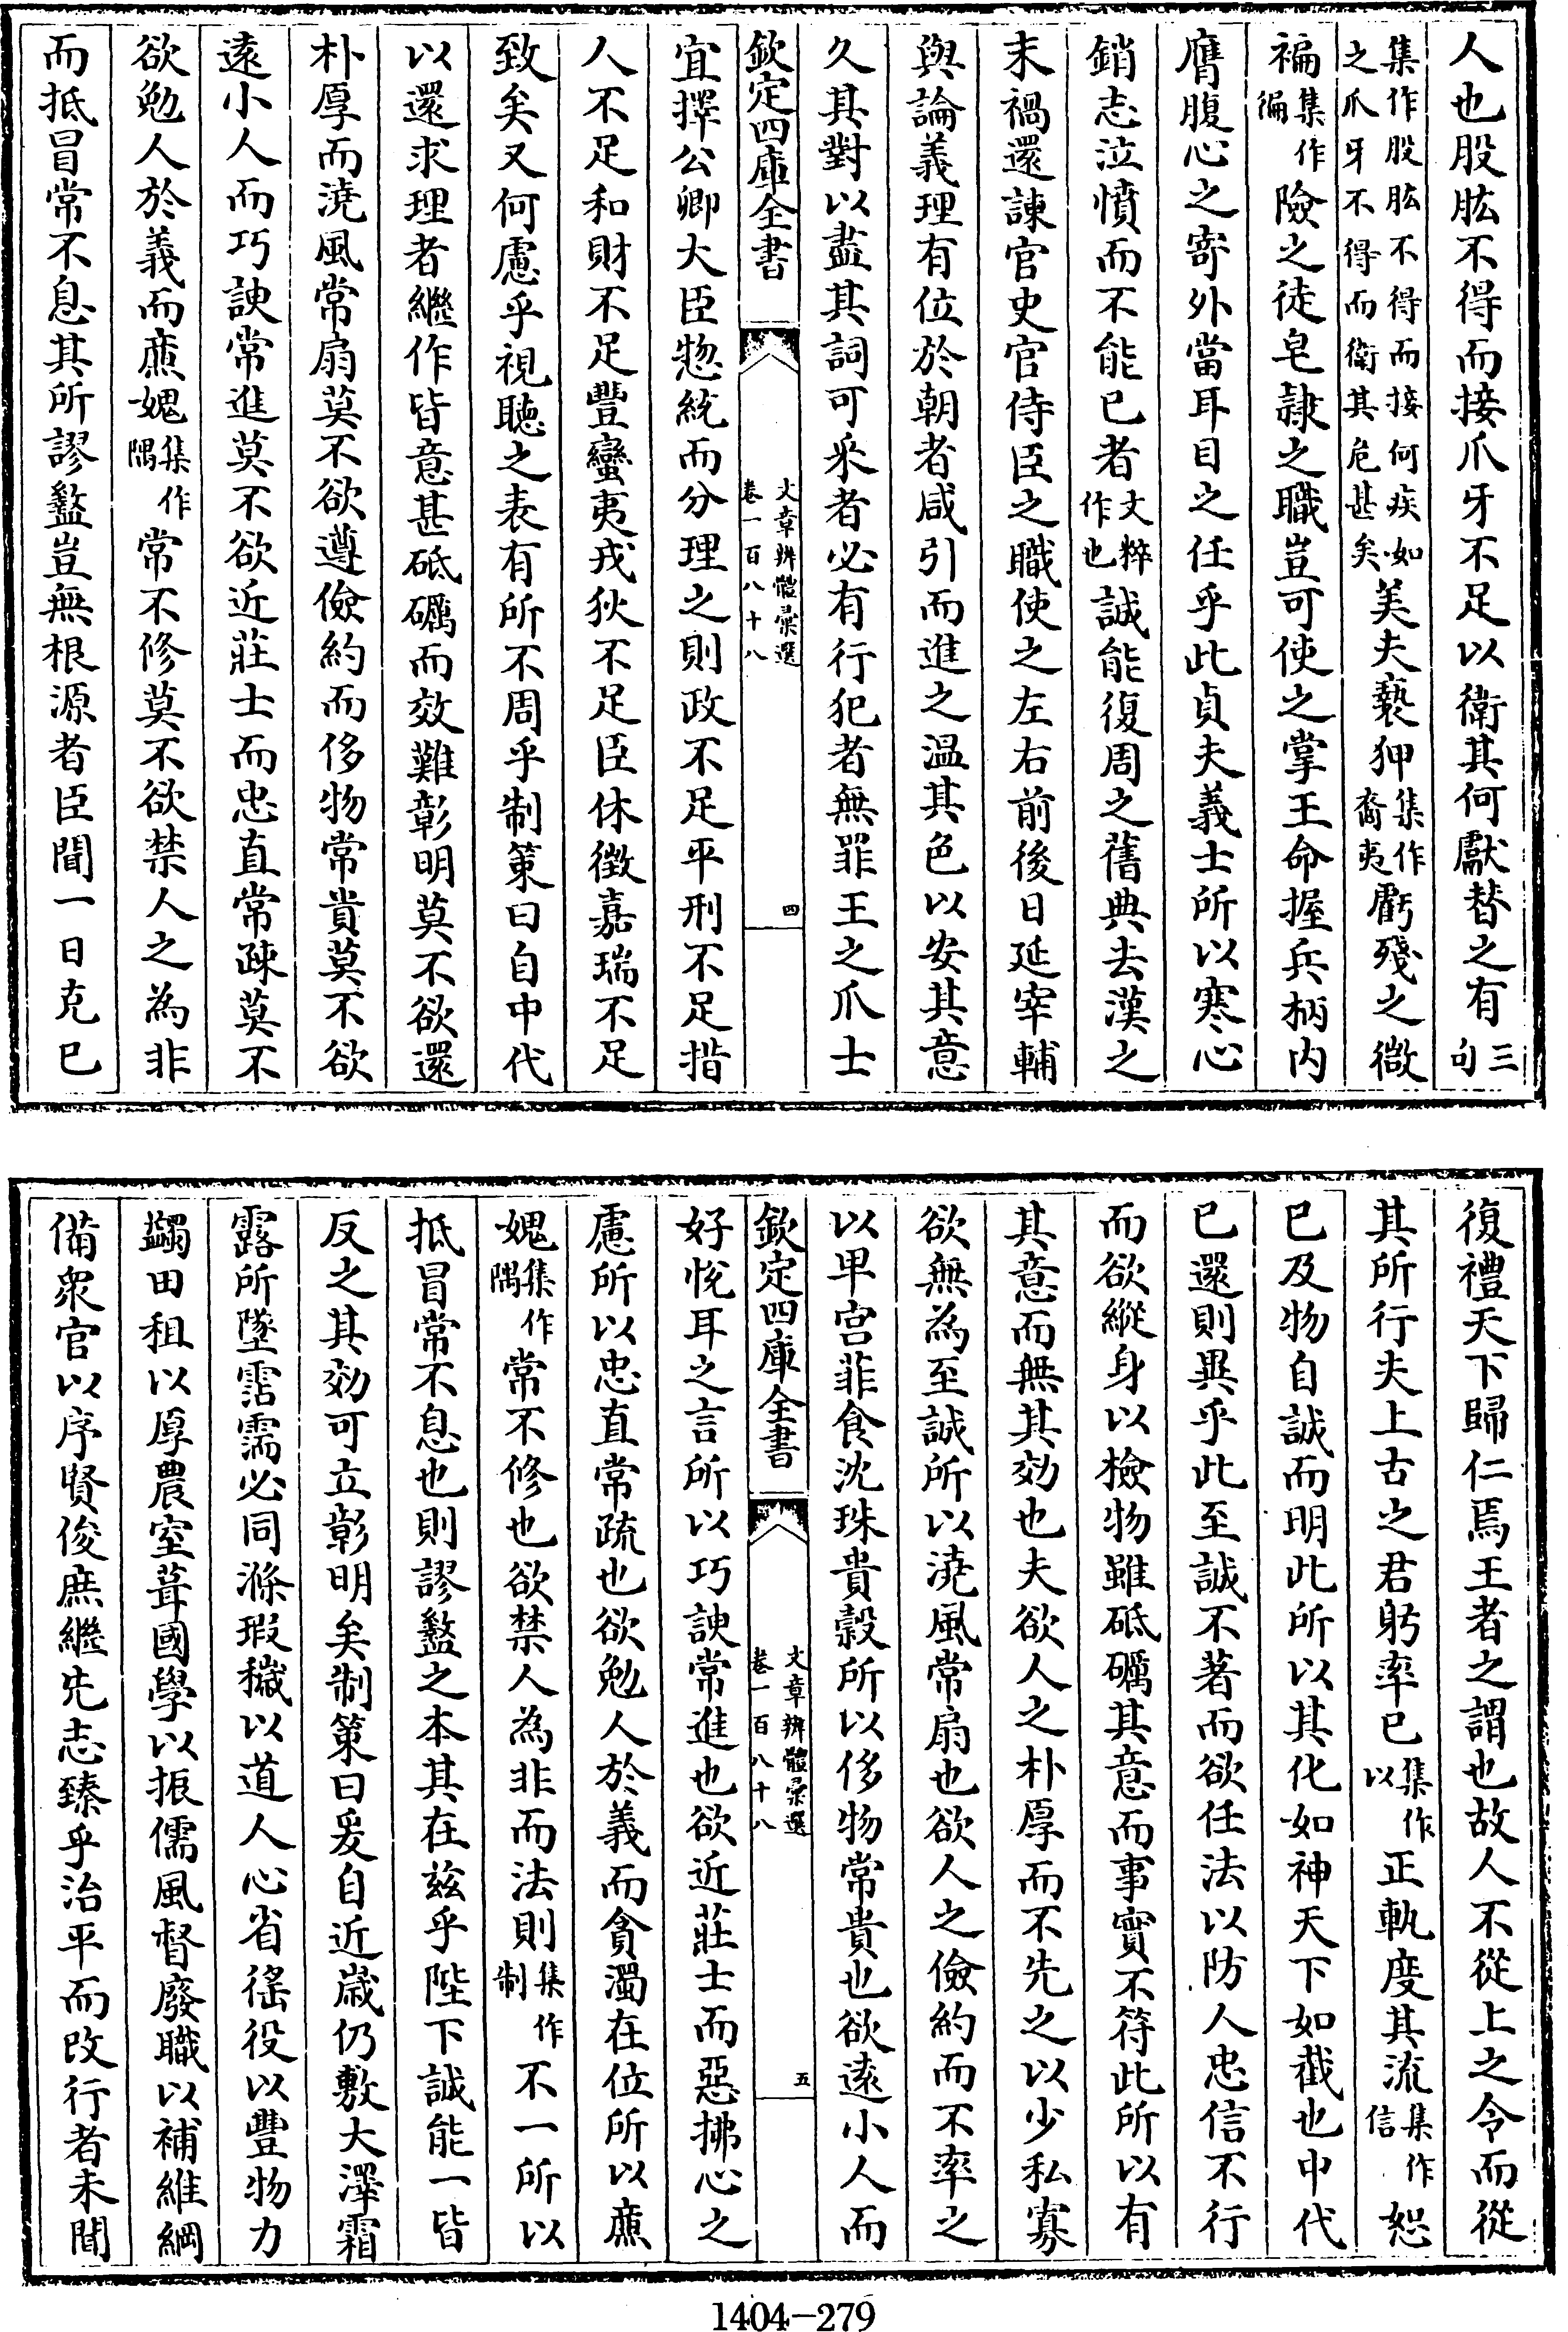 人也股肱不得而接爪牙不足以衛其何獻替之有三句
集作股肱不得而接何疾如之爪牙不得而衛其危甚矣美夫褻狎集作裔夷虧殘之微
褊集作徧險之徒皂隷之職豈可使之掌王命握兵柄内
膺腹心之寄外當耳目之任乎此貞夫義士所以寒心
銷志泣憤而不能已者文粹作也誠能復周之舊典去漢之
末禍還諫官史官侍臣之職使之左右前後日延宰輔
與論義理有位於朝者咸引而進之温其色以安其意
久其對以盡其詞可采者必有行犯者無罪王之爪士
欽定四庫全書 文章辨體彚選 卷一百八十八 四
宜擇公卿大臣惣統而分理之則政不足平刑不足措
人不足和財不足豐蠻夷戎狄不足臣休徴嘉瑞不足
致矣又何慮乎視聽之表有所不周乎制策曰自中代
以還求理者繼作皆意甚砥礪而效難彰明莫不欲還
朴厚而澆風常扇莫不欲遵儉約而侈物常貴莫不欲
遠小人而巧諛常進莫不欲近莊士而忠直常疎莫不
欲勉人於義而廉媿集作隅常不修莫不欲禁人之為非
而抵冒常不息其所謬盭豈無根源者臣聞一日克已
復禮天下歸仁焉王者之謂也故人不從上之令而從
其所行夫上古之君躬率已集作以正軌度其流集作信恕
已及物自誠而明此所以其化如神天下如截也中代
已還則異乎此至誠不著而欲任法以防人忠信不行
而欲縱身以檢物雖砥礪其意而事實不符此所以有
其意而無其効也夫欲人之朴厚而不先之以少私寡
欲無為至誠所以澆風常扇也欲人之儉約而不率之
以卑宫菲食沈珠貴榖所以侈物常貴也欲遠小人而
欽定四庫全書 文章辨體彚選 卷一百八十八 五
好悅耳之言所以巧諛常進也欲近莊士而惡拂心之
慮所以忠直常疏也欲勉人於義而貪濁在位所以廉
媿集作隅常不修也欲禁人為非而法則集作制不一所以
抵冒常不息也則謬盭之本其在兹乎陛下誠能一皆
反之其効可立彰明矣制策曰爰自近嵗仍敷大澤霜
露所墜霑濡必同滌瑕穢以道人心省徭役以豐物力
蠲田租以厚農室葺國學以振儒風督廢職以補維綱
備衆官以序賢俊庶繼先志臻乎治平而改行者未聞
1404-279